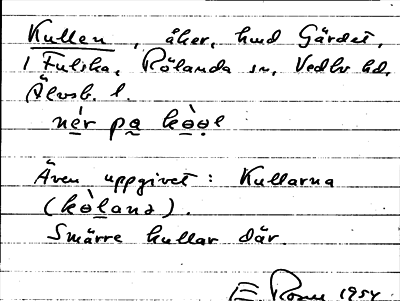 Kullen, åker, hmd Gärdet,
1 Fulska, Rölanda sn, Vedbo hd,
Älvsb. l.
nér pa kòǫl
Även uppgivet: Kullarna
(kòlana).
Smärre kullar där.
1954